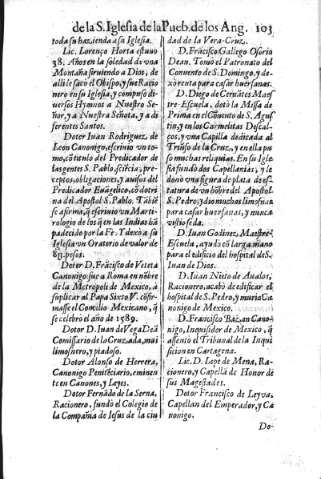 de la S. Iglesia de la Pueb. de los Ang. 103
toda su hazienda a su Iglesia.
Lic. Lorenço Horta estuvo
38. Años en la soledad de una
Montaña sirviendo a Dios, de
alli le sacò el Obispo, y fue Racio
nero en su Iglesia, y compuso di
versos Hymnos a Nuestro Se-
ñor, y a Nuestra Señora, y a di
ferentes Santos.
Dotor Iuan Rodriguez de
Leon Canonigo, escriviò un to-
mo, cõ titulo del Predicador de
las gentes S. Pablo, sciẽcia, pre-
ceptos, obligaciones, y avisos del
Predicador Euãgelico, cõ dotri
na del Apostol S. Pablo. Tãbiẽ
se afirma, q̃ escriviò un Marti-
rologio de los q̃ en las Indias hã
padecido por la Fè. Y dexò a su
Iglesia un Oratorio de valor de
8U. pesos.
Dotor D. Frãcisco de
Canonigo: fue a Roma en nõbre
de la Metropoli de Mexico, à
suplicar al Papa Sixto V. cõfir-
masse el Concilio Mexicano, q̃
se celebrò el año de 1589.
Dotor D. Iuan de Vega Deã
Comissario de la Cruzada, mui
limosnero, y piadoso.
Dotor Alonso de Herrera,
Canonigo Penitẽciario, eminen
te en Canones, y Leyes.
Dotor Fernãdo de la Serna,
Racionero, fundò el Colegio de
la Compañia de Iesus de la ciu
dad de la Vera-Cruz.
D. Frãcisco Gallego Osorio
Dean. Tomò el Patronato del
Convento de S. Domingo, y de-
xò renta para casar huerfanas.
D. Diego de Cervãtes Maes
tre-Escuela, dotò la Missa de
Prima en el Cõvento de S. Agus
tin, y en los Carmelitas Descal-
cos, y una Capilla dedicada al
Triũfo de la Cruz, y en ella pu
so muchas reliquias. En su Igle
sia fundò dos Capellanias, y le
donò una figura de plata de es
tatura de un hõbre del Apostol
S. Pedro; y dio muchas limosnas
para casar huerfanas, y nunca
vistiò seda.
D. Iuan Godinez, Maestre-
Escuela, ayudò cõ larga mano
para el edificio del hospital de S.
Iuan de Dios.
D. Iuan Nieto de Avalos,
Racionero, acabò de edificar el
hospital de S. Pedro, y muriò Ca
nonigo de Mexico.
D. Francisco Baçan Cano-
nigo, Inquisidor de Mexico, q̃
assentò el Tribunal de la Inqui
sicion en Cartagena.
Lic. D. Lope de Mena, Ra-
cionero, y Capellã de Honor de
sus Magestades.
Dotor Francisco de Leyva,
Capellan del Emperador, y Ca
nonigo.
Do-